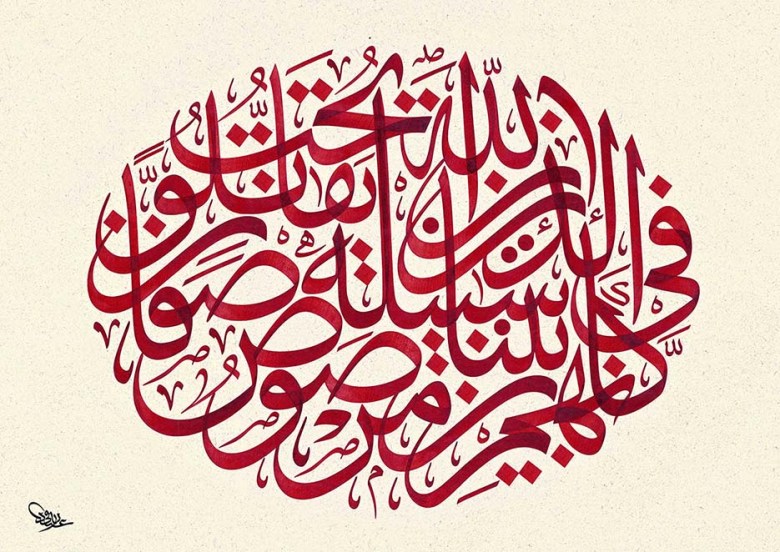 إن الله يحب الذين يقاتلون في سبيله صفًا كأنهم بنيان مرصوص